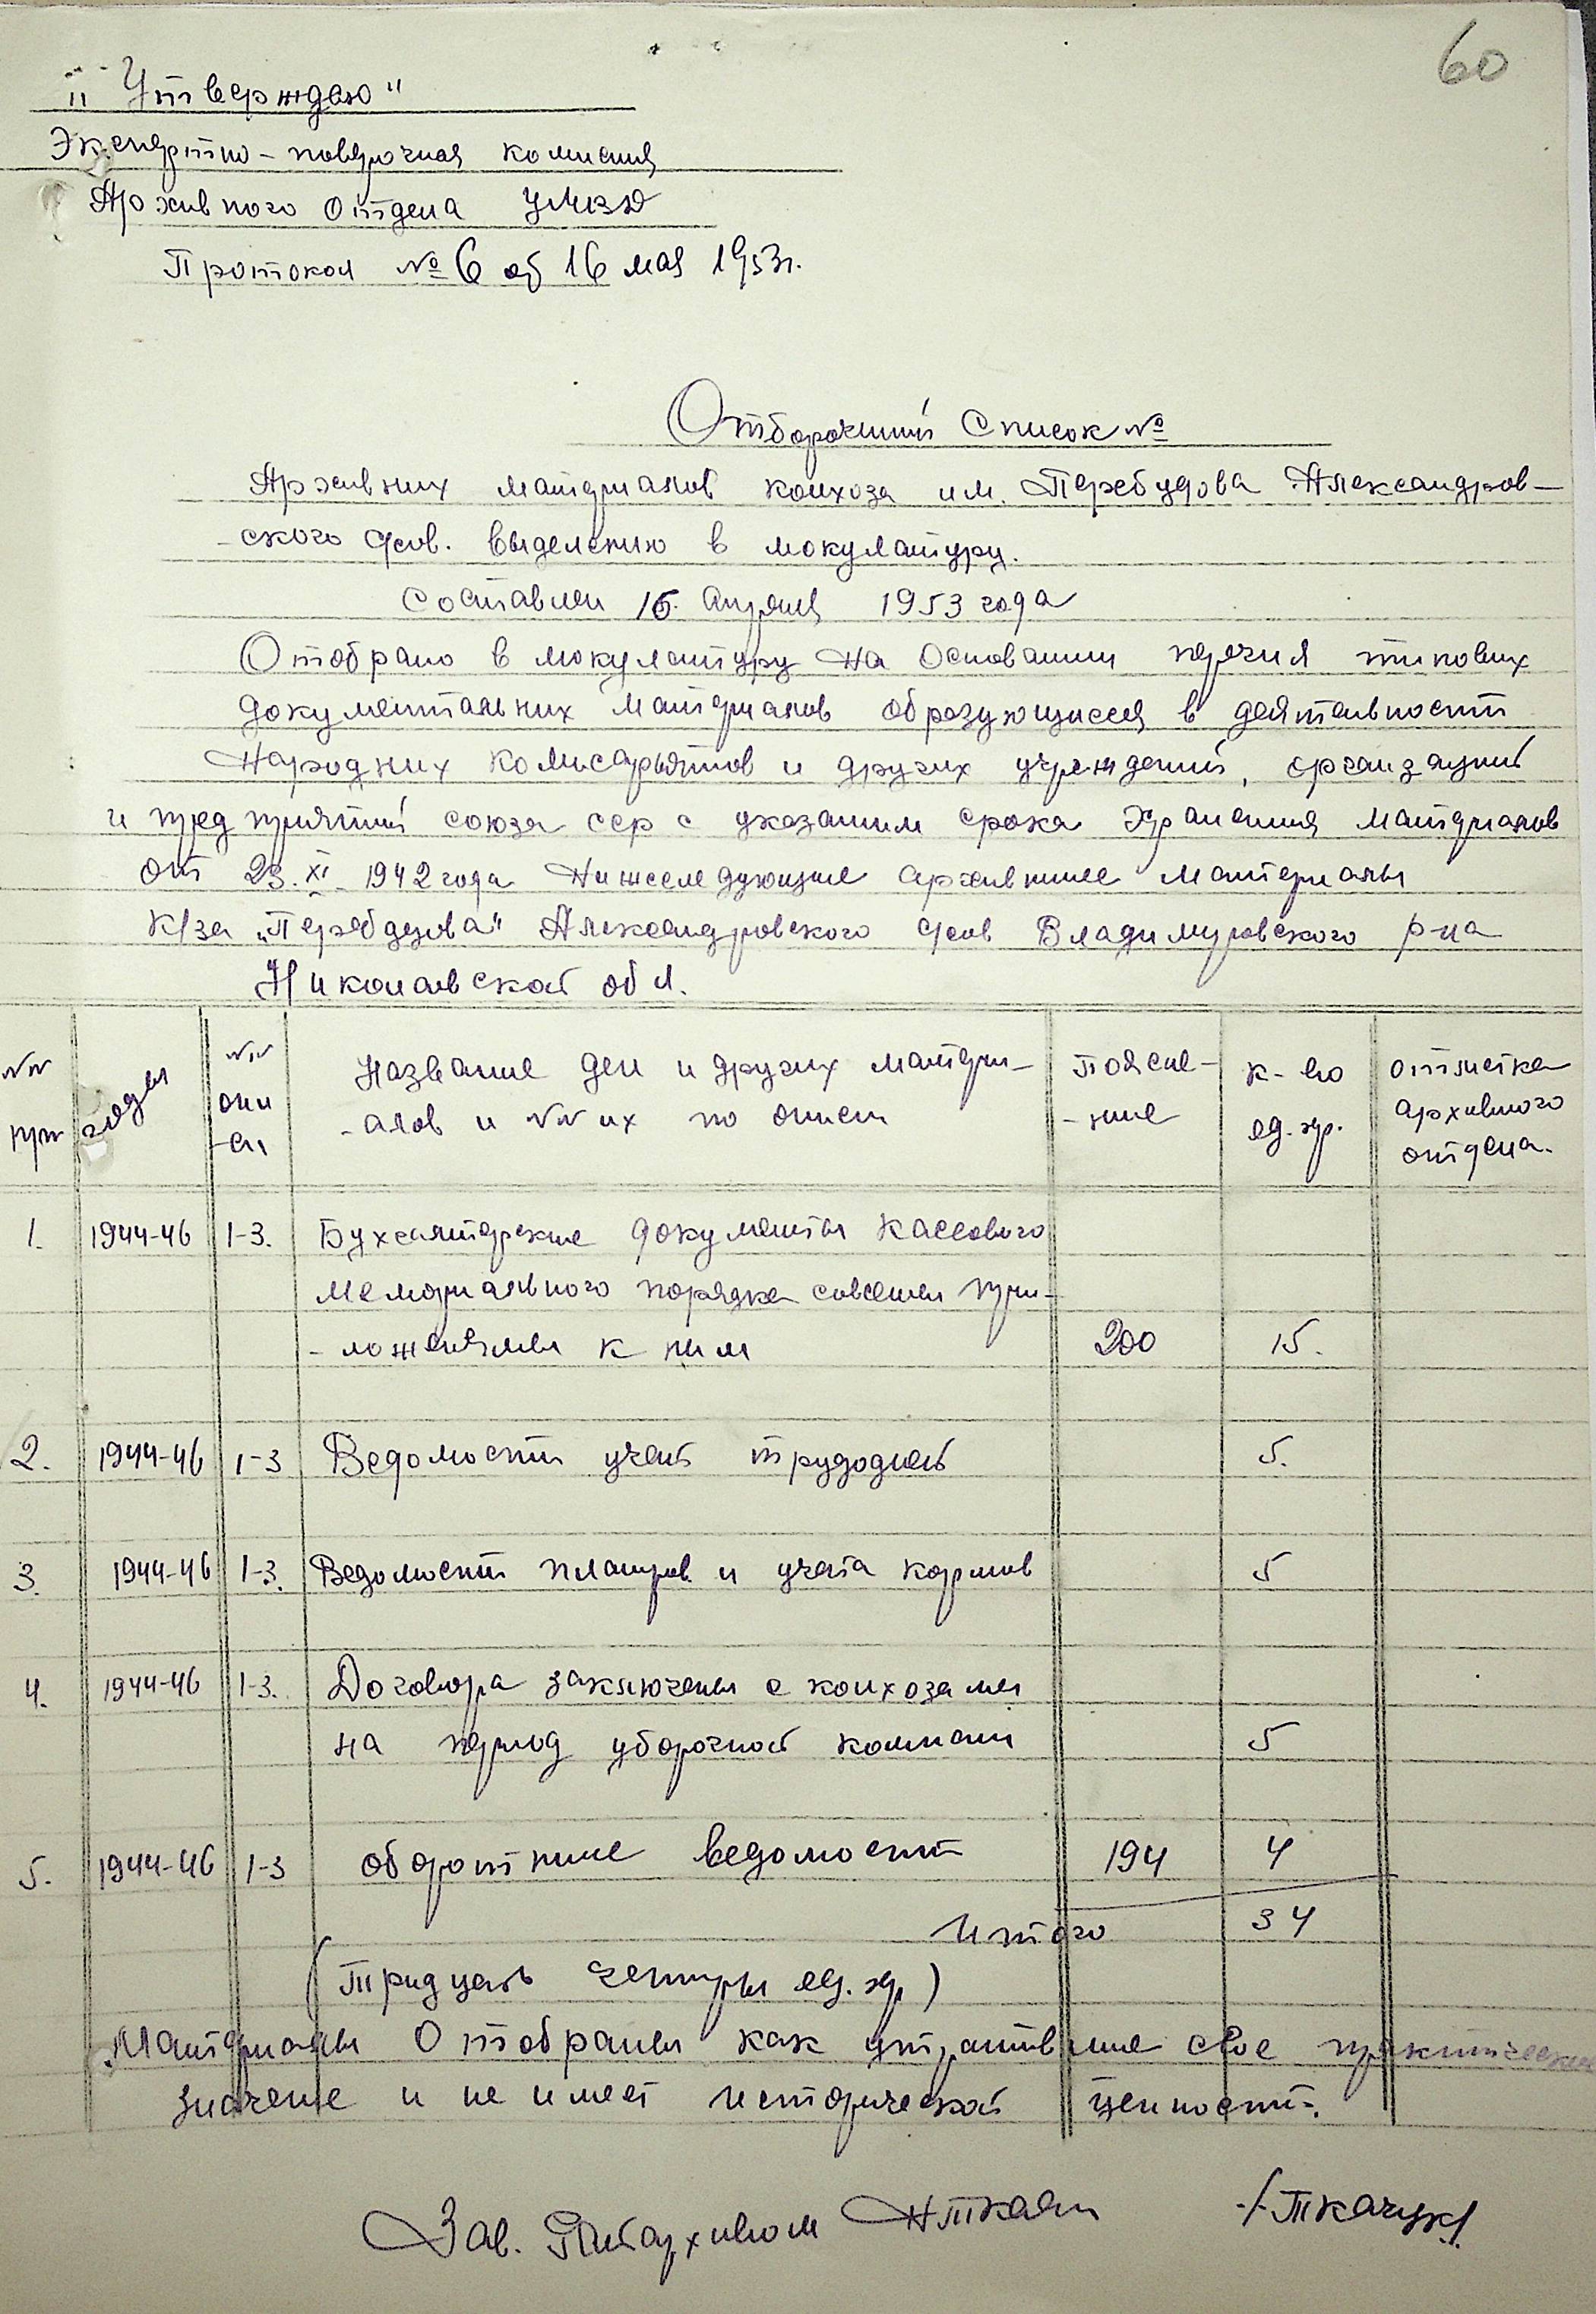 60
"Утверждаю"
Экспертно-поверочная комисия
Архивного отдела УМВД
Протокол № 6 от 16 мая 1953г.
Отборочный список №
Архивних материалов колхоза им. Перебудова Александров-
-ского с/сов. выделению в мокулатуру.
Составлен 16. апреля 1953 года
Отобрано в мокулатуру на основании перечня типових
документальних материалов образующися в деятельности
Народних комисарьятов и других учреждений, организаций
и предприятий союза сср с указанием срока хранения материалов
от 23. XI 1942 года нижеследующие архивние материалы
к/за „Перебудова" Александровского с/сов Владимировского р-на
Николаевской обл.
NN пп годы NN опи -си Название дел и других матери- -алов и NN их по описи Поясне- -ние к-во ед. хр. отметка архивного отдела.
1. 1944-46 1-3. Бухгалтерские документы кассового
мемориального порядка совсеми при-
-ложениями к ним 200 15.
2. 1944-46 1-3 Ведомости учета трудодней 5.
3. 1944-46 1-3. Ведомости планиров. и учета кормов 5
4. 1944-46 1-3. Договора заключены с колхозами
на период уборочной компани 5
5. 1944-46 1-3 оборотние ведомости 194 4
Итого 34
(Тридцать четыры ед. хр.)
Материалы отобраны как утративние свое практическое
значение и не имеет исторической ценности.
Зав. Райархивом /Ткачук/.